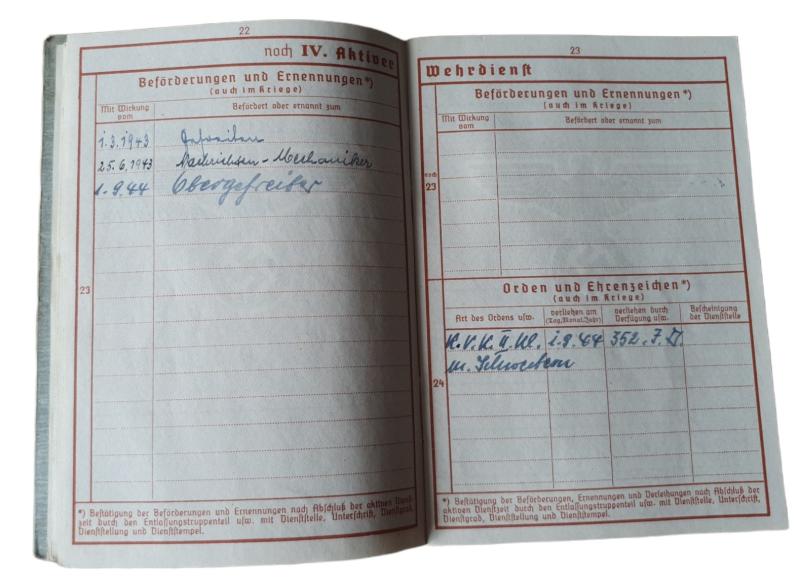 22
noch IV. Aktiver
Beförderungen und Ernennungen*)
(auch im Kriege)
Mit Wirkung
vom
Befördert oder ernannt zum
1.3.1943 Gefreiten
25.6.1943 Nachrichten-Mechaniker
1.9.44 Obergefreiter
23
*) Bestätigung der Beförderungen und Ernennungen nach Abschluß der aktiven Dienst-
zeit durch den Entlassungstruppenteil usw. mit Dienststelle, Unterschrift, Dienstgrad,
Dienststellung und Dienststempel.
23
Wehrdienst
Beförderungen und Ernennungen*)
(auch im Kriege)
Mit Wirkung
vom
Befördert oder ernannt zum
noch
23
Orden und Ehrenzeichen*)
(auch im Kriege)
Art des Ordens usw.
verliehen am
(Tag, Monat, Jahr)
verliehen durch
Verfügung usw.
Bescheinigung
der Dienststelle
K.V.K. II. Kl. 1.9.44 352. J.D.
m. Schwertern
24
*) Bestätigung der Beförderungen, Ernennungen und Verleihungen nach Abschluß der
aktiven Dienstzeit durch den Entlassungstruppenteil usw. mit Dienststelle, Unterschrift,
Dienstgrad, Dienststellung und Dienststempel.